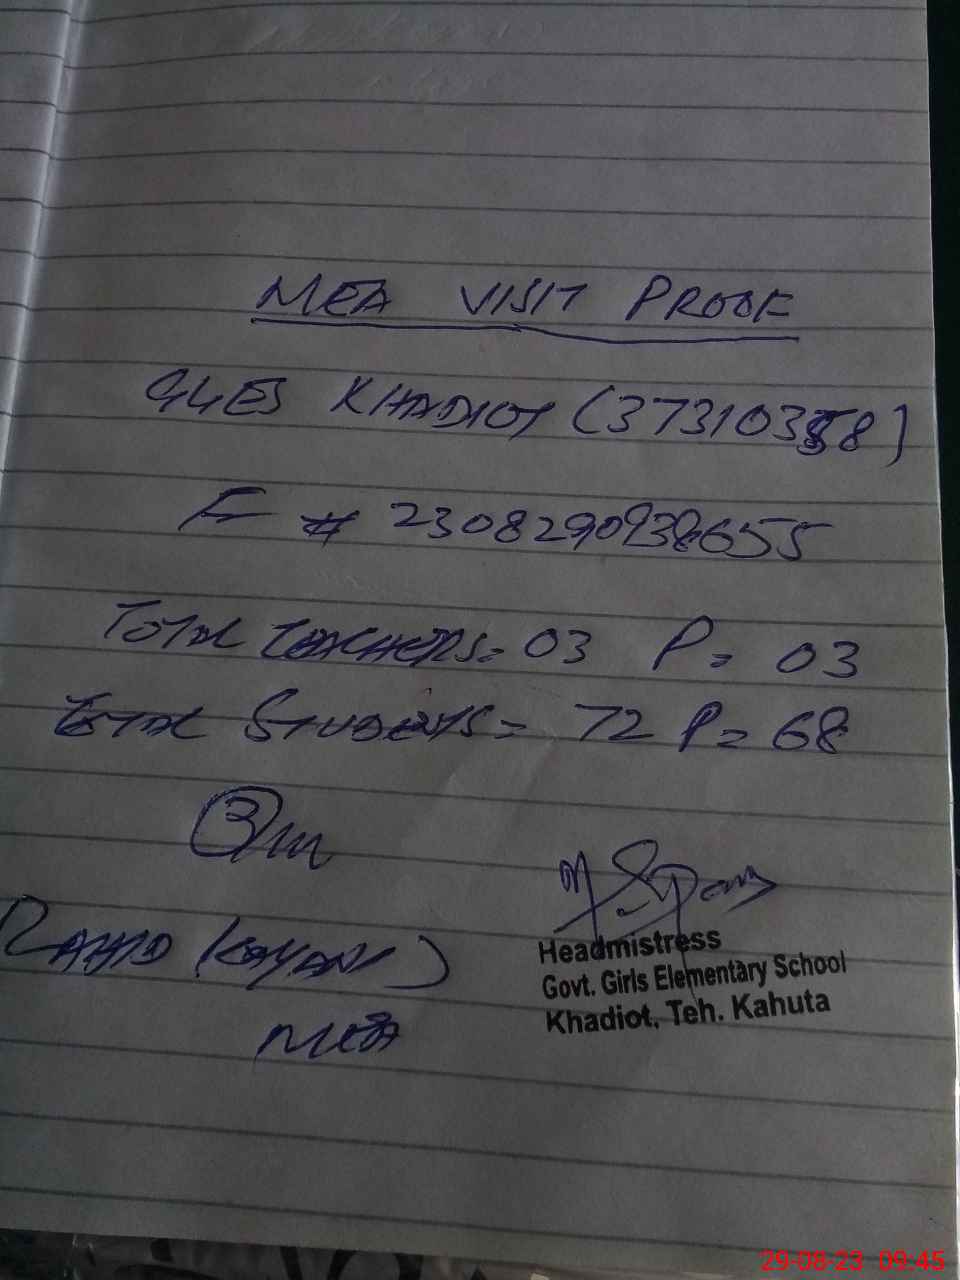 MEA VISIT PROOF
GGES KHADIOT (37310358)
F # 2308290938655
Total Teachers = 03 P = 03
Total Students = 72 P = 68
(Kayani)
MEA
Headmistress
Govt. Girls Elementary School
Khadiot, Teh. Kahuta
29-08-23 09:45